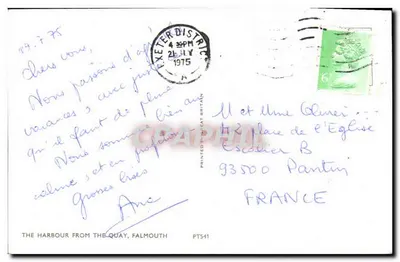 19.7.75
Chers vous,
Nous passons d'
vacances, avec juste
qu'il faut de pluie
Nous sommes bien au
calme, et en
Grosses bises
Ana
EXETER DISTRICT
4 PM
1975
A
PRINTED IN GREAT BRITAIN
CPAPHIL
M et Mme
43 place de l'Eglise
Escalier B
93500 Pantin
FRANCE
THE HARBOUR FROM THE QUAY, FALMOUTH PT541